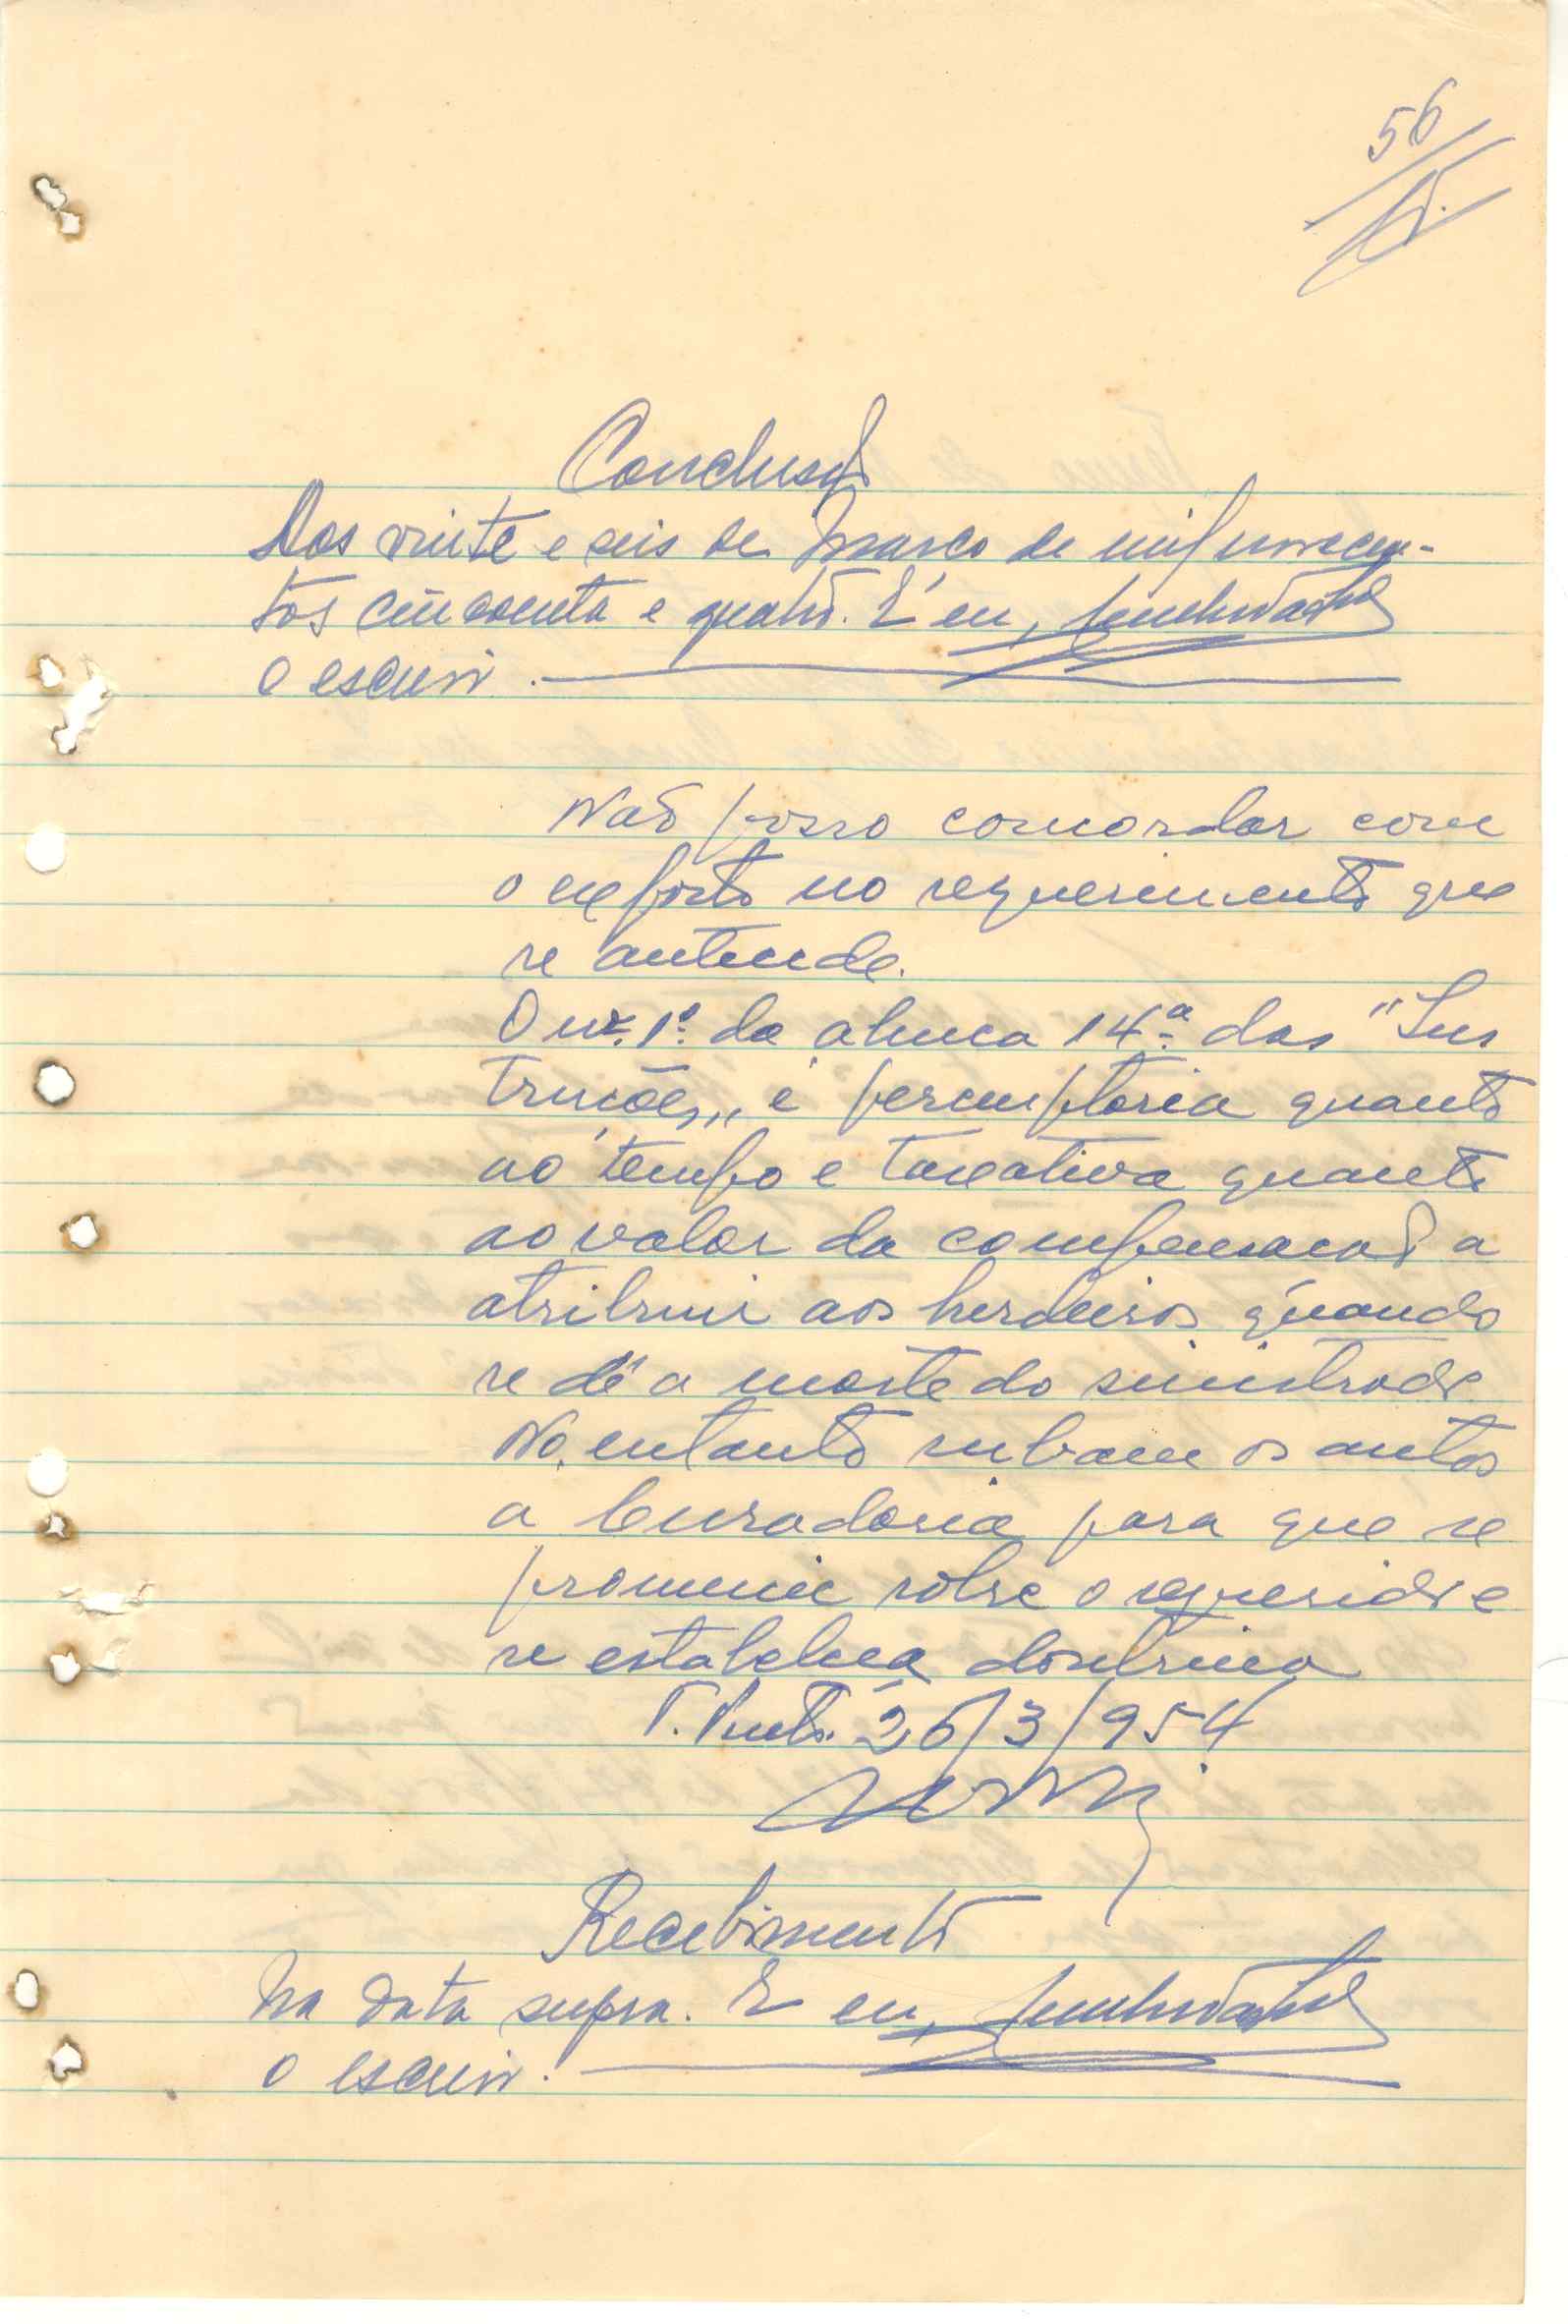 56
Conclusão
Aos vinte e seis de Março de mil novecen-
tos cincoenta e quatro. E eu,
o escrevi.
Não posso concordar com
o exposto no requerimento que
se antecede.
O nº. 1º. da alinea 14ª. das "Ins
truções" é peremptoria quanto
ao tempo e taxativa quanto
ao valor da compensação a
atribuir aos herdeiros quando
se dê a morte do sinistrado
No entanto subam os autos
a Curadoria para que se
pronuncie sobre o requerido e
se estabeleça doutrina
26/3/954
Recebimento
Na data supra. E eu,
o escrevi.